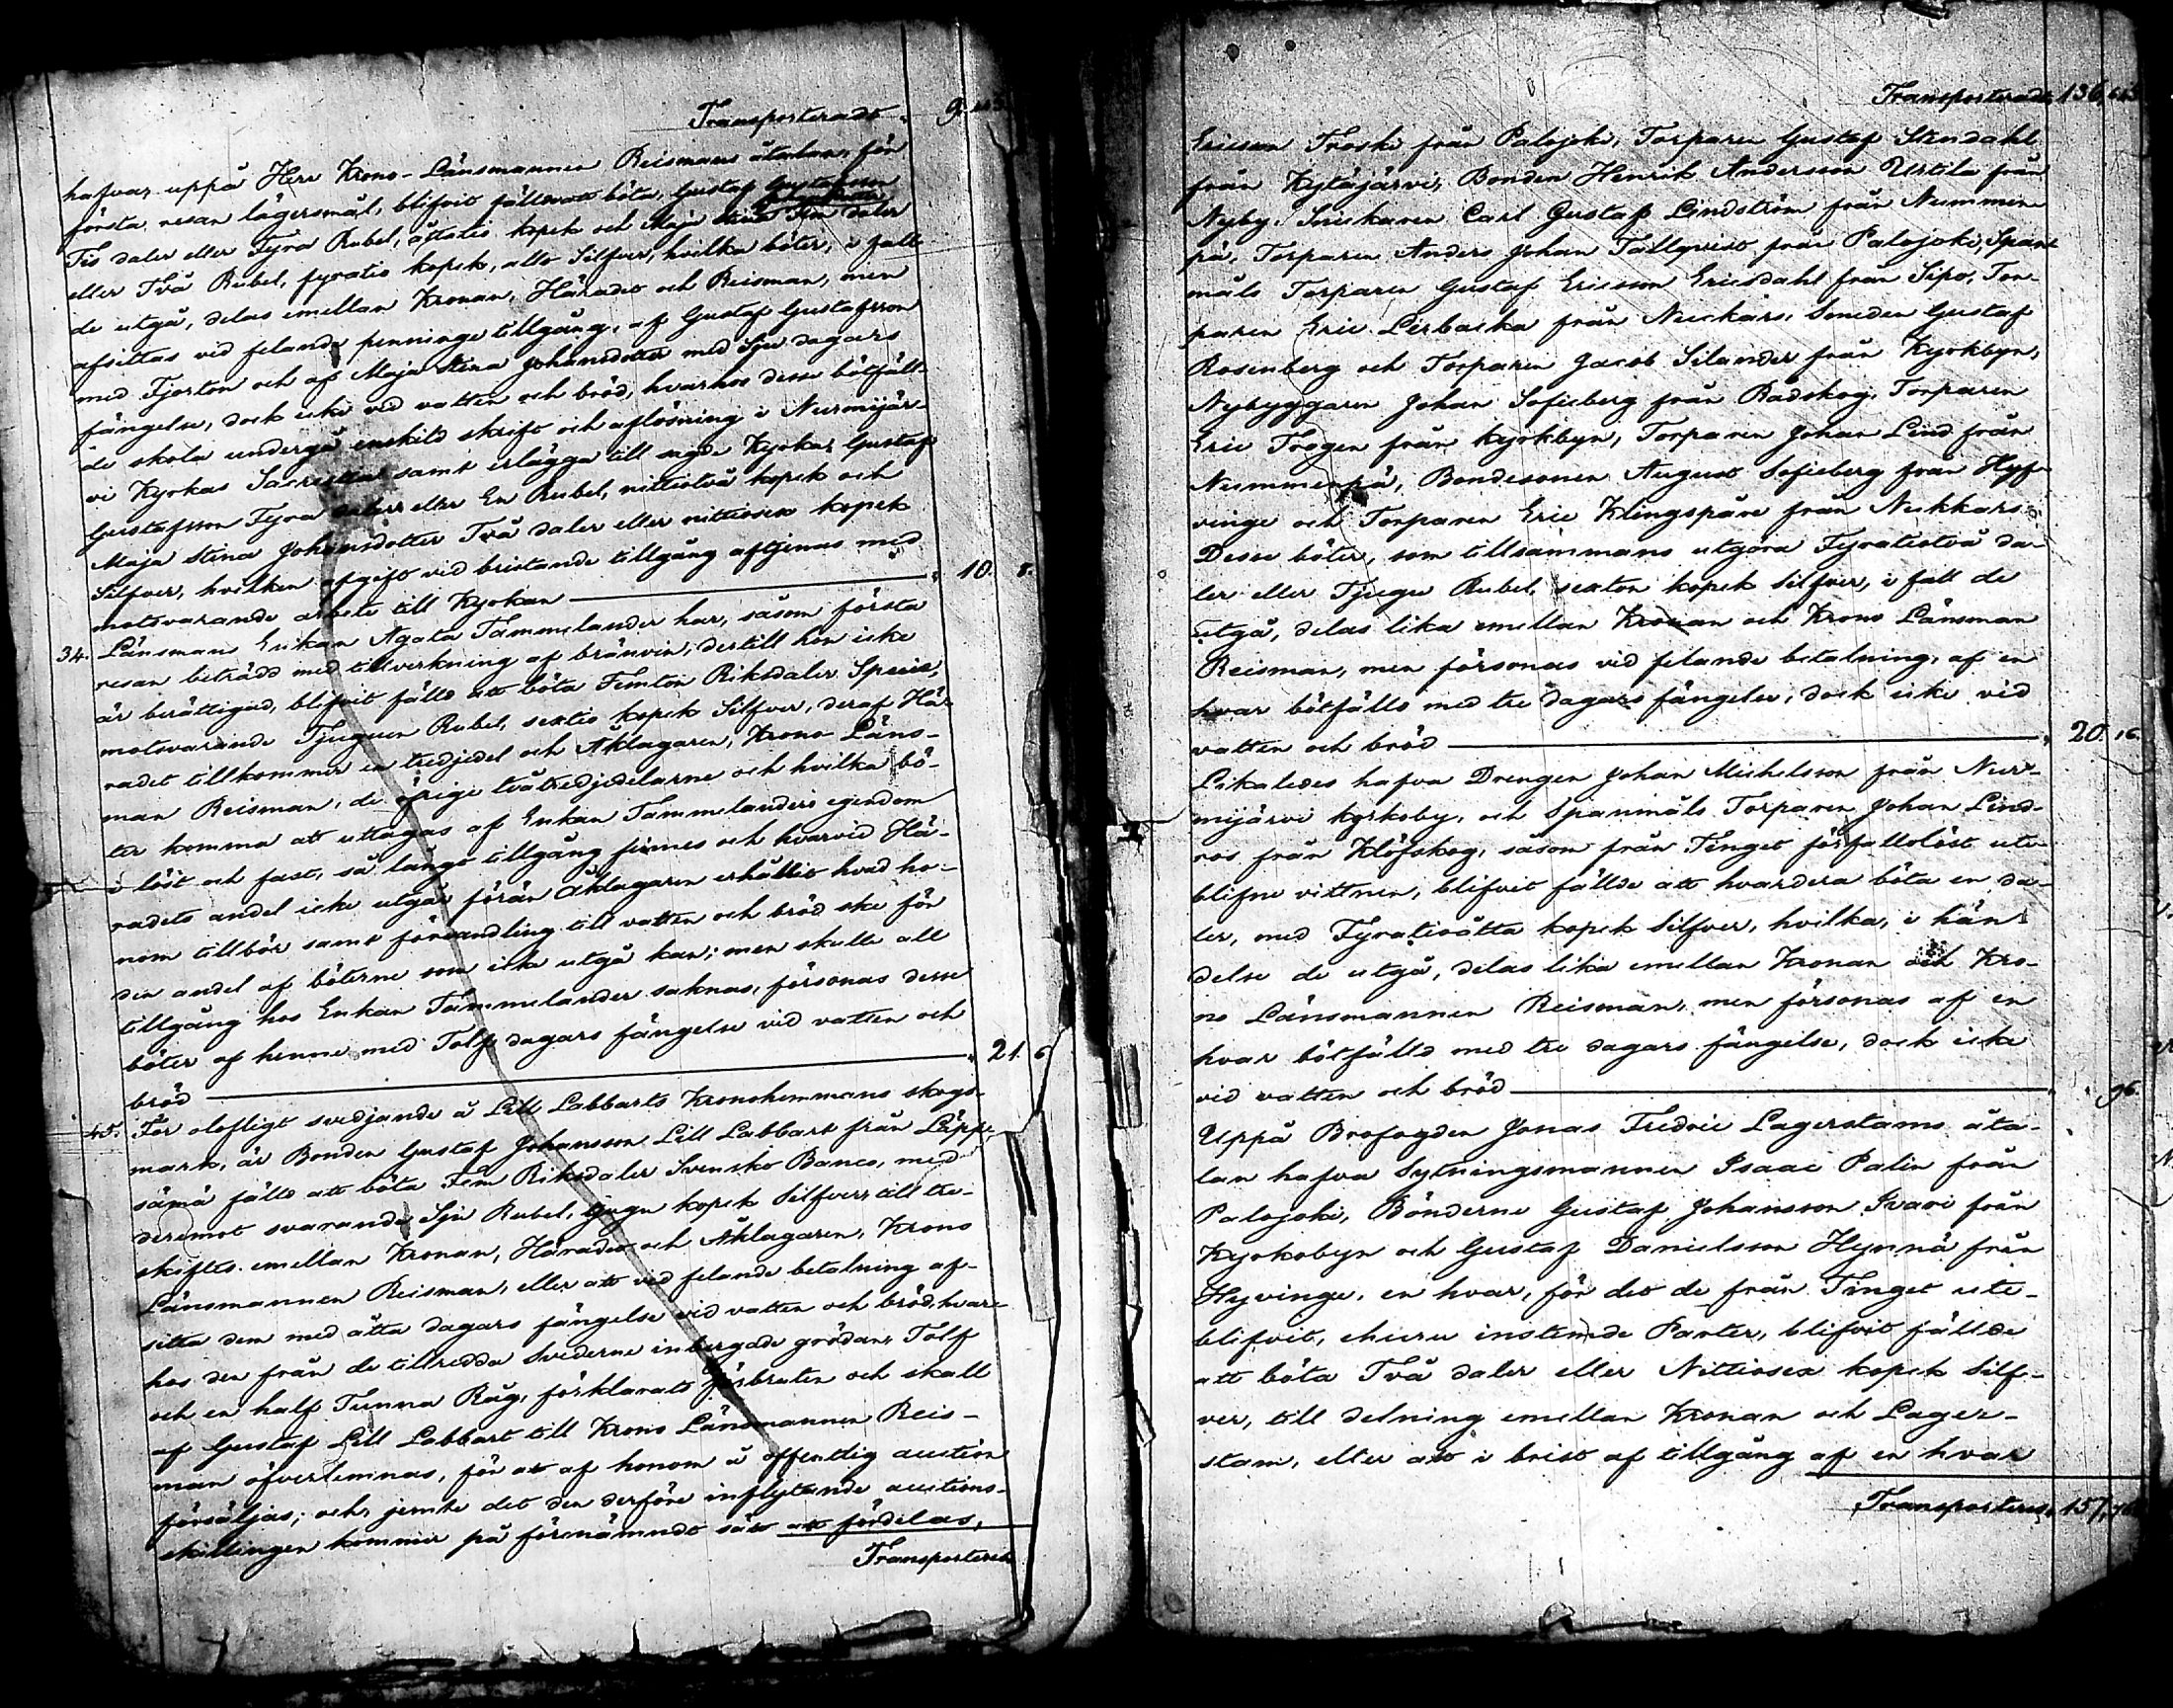 Transporteradt 9.
hafvar uppå Herr Krono-Länsmannen Reismans åtalan, för
första resan lägersmål, blifvit fällde att böta, Gustaf Gustafsson
Tio daler eller Fyra Rubel, åttatio kopek och Maja Stina Fem daler
eller Två Rubel, fyratio kopek, allt Silfver, hvilka böter, i fall
de utgå, delas emellan Kronan, Häradet och Reisman, men
afsittas vid felande penninge tillgång, af Gustaf Gustafsson
med Fjorton och af Maja Stina Johansdotter med Sju dagars
fängelse, dock icke vid vatten och bröd, hvarhos desse bötfäll-
de skola undergå enskild skrift och aflösning i Nurmijär-
vi Kyrkas Sacristia samt erlägga till sagde Kyrka, Gustaf
Gustafsson Fyra daler eller En Rubel, nittiotvå kopek och
Maja Stina Johansdotter Två daler eller nittiosex kopek
Silfver, hvilken afgift vid bristande tillgång aftjenas med
motsvarande arbete till Kyrkan 10. 8.
34. Länsmans Enkan Agata Tammelander har, såsom första
resan beträdd med tillverkning af bränvin, dertill hon icke
är berättigad, blifvit fälld att böta Femton Riksdaler Specie,
motsvarande Tjuguen Rubel, sextio kopek Silfver, deraf Hä-
radet tillkommer en tredjedel och Åklagaren, Krono Läns-
man Reisman, de öfrige tvåtredjedelarne och hvilka bö-
ter komma att uttagas af Enkan Tammelanders egendom
i löst och fast, så långt tillgång finnes och hvarvid Hä-
radets andel icke utgår förän Åklagaren erhållit hvad ho-
nom tillbör samt förvandling till vatten och bröd ske för
den andel af böterne som icke utgå kan; men skulle all
tillgång hos Enkan Tammelander saknas, försonas desse
böter af henne med Tolf dagars fängelse vid vatten och
bröd 21. 6
45. För olofligt svedjande å Lill Labbarts Kronohemmans skogs-
mark, är Bonden Gustaf Johansson Lill Labbart från Läppe-
sämä fälld att böta Fem Riksdaler Svensko Banco, med
deremot svarande Sju Rubel, tjugu kopek Silfver till tre-
skiftes emellan Kronan, Häradet och Åklagaren, Krono
Länsmannen Reisman, eller att vid felande betalning af-
sitta dem med åtta dagars fängelse vid vatten och bröd, hvar-
hos den från de tillredda svederne inbergade grödan, Tolf
och en half Tunna Råg, förklarats förbruten och skall
af Gustaf Lill Labbart till Krono Länsmannen Reis-
man öfverlemnas, för att af honom å offentlig auction
försäljas; och, jemte det den derföre inflytande auctions-
skillingen kommer på förenämndt sätt att fördelas,
Transporteras
Transporteradt 136,
Ericson Troske från Palojoki, Torparen Gustaf Stendahl
från Kytäjärvi, Bonden Henrik Andersson Urtila från
Nyby, Snickaren Carl Gustaf Lindström från Nummen-
pä, Torparen Anders Johan Tallqvist från Palojoki, Span-
måls Torparen Gustaf Ericsson Ericsdahl från Sipo, Tor-
paren Eric Lerbacka från Nuckars, Smeden Gustaf
Rosenberg och Torparen Jacob Silander från Kyrkbyn,
Nybyggaren Johan Sofieberg från Radskog, Torparen
Eric Trogen från Kyrkbyn, Torparen Johan Lind från
Nummenpä, Bondesonen August Sofieberg från Hyf-
vinge och Torparen Eric Klingspåre från Nukkars.
Desse böter, som tillsammans utgöra Fyratiotvå da-
ler eller Tjugu Rubel, sexton kopek silfver, i fall de
utgå, delas lika emellan Kronan och Krono Länsman
Reisman, men försonas vid felande betalning, af en
hvar bötfälld med tre dagars fängelse, dock icke vid
vatten och bröd 20. 16.
Likaledes hafva Drengen Johan Michelsson från Nur-
mijärvi kyrkoby, och Spanmåls Torparen Johan Lind-
ros från Klöfskog, såsom från Tinget förfallolöst ute-
blifne vittnen, blifvit fällde att hvardera böta en da-
ler, med Fyratioåtta kopek silfver, hvilka, i hän-
delse de utgå, delas lika emellan Kronan och Kro-
no Länsmannen Reisman, men försonas af en
hvar bötfälld med tre dagars fängelse, dock icke
vid vatten och bröd 96.
Uppå Brofogden Jonas Fredric Lagerstams åta-
lan hafva Sytningsmannen Isaac Palin från
Palojoki, Bönderne Gustaf Johansson Ivari från
Kyrkobyn och Gustaf Danielsson Hynnä från
Hyvinge, en hvar, för det de från Tinget ute-
blifvit, ehuru instemde Parter, blifvit fällde
att böta Två daler eller Nittiosex kopek Silf-
ver, till delning emellan Kronan och Lager-
stam, eller att i brist af tillgång af en hvar
Transporteras 157,